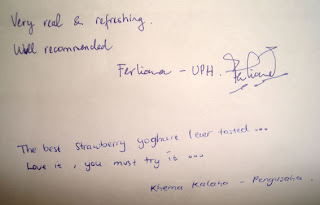 Very real & refreshing.
Well recommended
Ferliana - UPH.
The best strawberry yoghurt I ever tasted ...
Love it, you must try is ...
Khema Kalaha - Pengusaha.